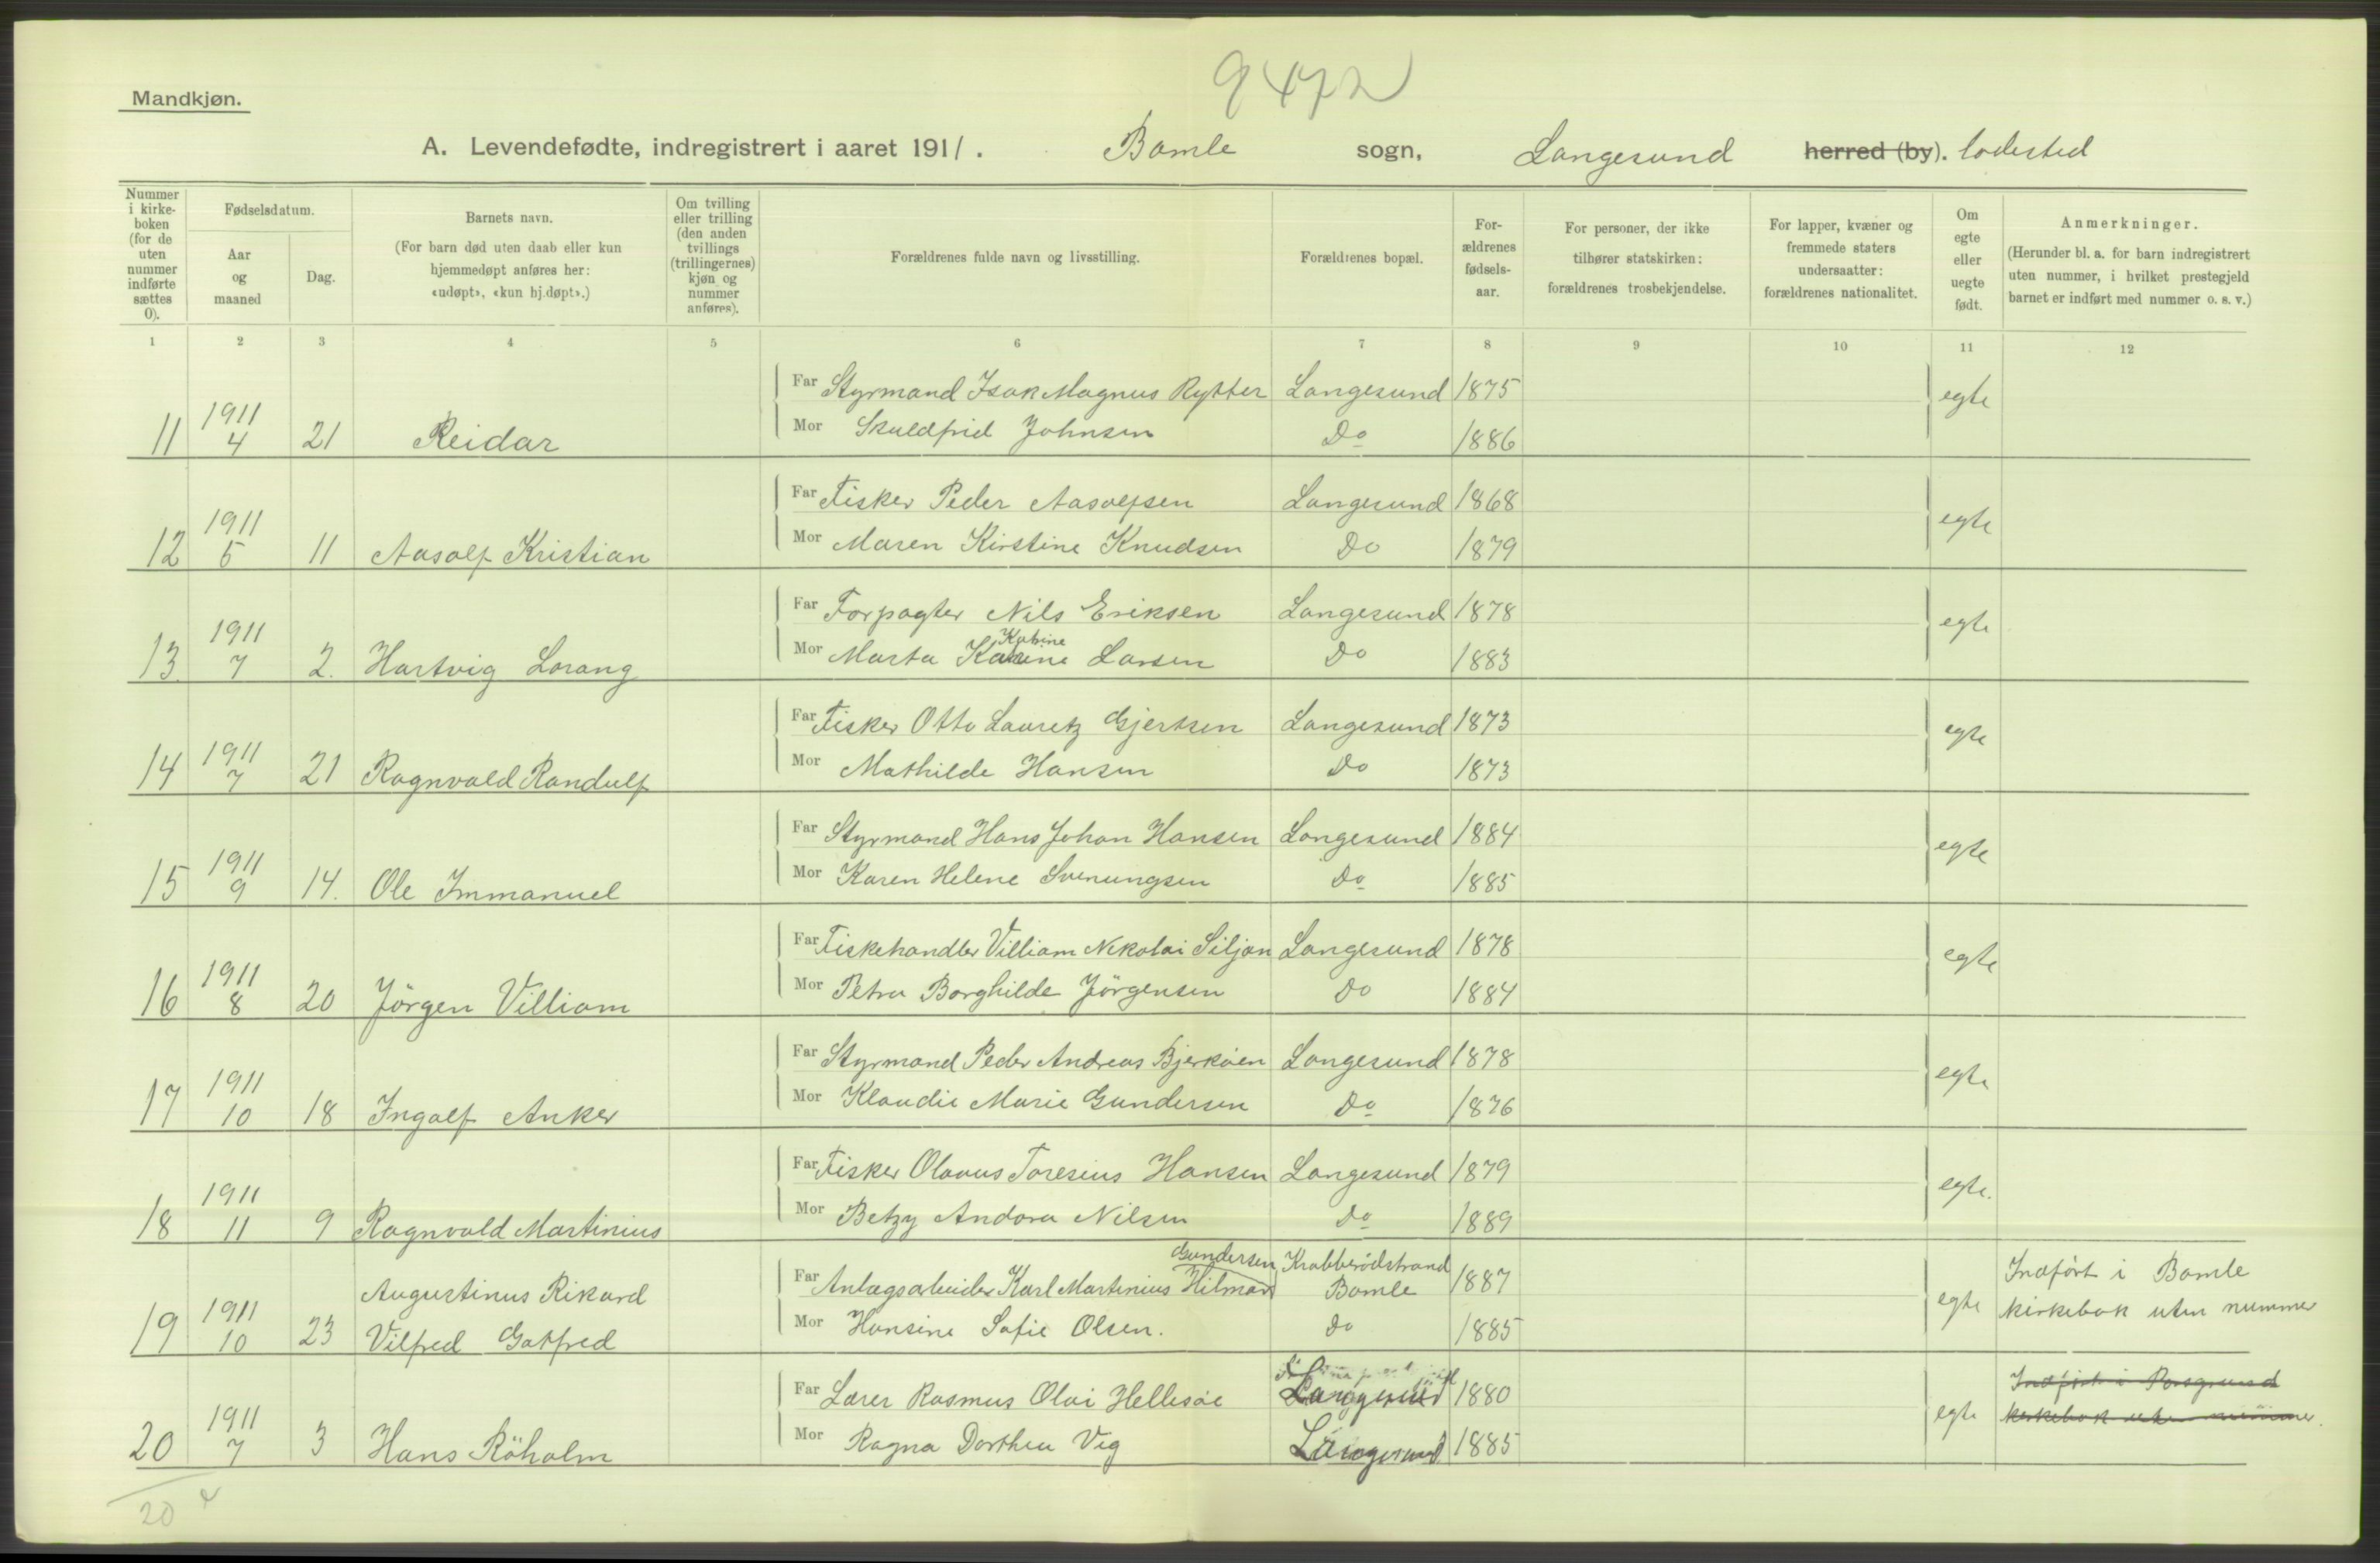 9472
Mandkjøn.
A. Levendefødte, indregistrert i aaret 1911. Bamle sogn, Langesund herred (by). ladested
Nummer i kirkeboken (for de uten nummer indførte sættes 0).
Fødselsdatum.
Aar og maaned
Dag.
Barnets navn.
(For barn død uten daab eller kun hjemmedøpt anføres her: «udøpt», «kun hj.døpt».)
Om tvilling eller trilling (den anden tvillings (trillingernes) kjøn og nummer anføres).
Forældrenes fulde navn og livsstilling.
Forældrenes bopæl.
For-ældrenes fødsels-aar.
For personer, der ikke tilhører statskirken: forældrenes trosbekjendelse.
For lapper, kvæner og fremmede staters undersaatter: forældrenes nationalitet.
Om egte eller uegte født.
Anmerkninger.
(Herunder bl. a. for barn indregistrert uten nummer, i hvilket prestegjeld barnet er indført med nummer o. s. v.)
1 2 3 4 5 6 7 8 9 10 11 12
Far Styrmand Isak Magnus Rytter Langesund 1875 egte
11 1911 4 21 Reidar Mor Skuldfrid Johnsen Do 1886
Far Fisker Peder Aasolfsen Langesund 1868 egte
12 1911 5 11 Aasolf Kristian Mor Maren Kirstine Knudsen Do 1879
Far Forpagter Nils Eriksen Langesund 1878 egte
Katrine
13 1911 7 2. Hartvig Lorang Mor Marta Larsen Do 1883
Far Fisker Otto Lauretz Gjertsen Langesund 1873 egte
14 1911 7 21 Ragnvald Randulf Mor Mathilde Hansen Do 1873
Far Styrmand Hans Johan Hansen Langesund 1884 egte
15 1911 9 14. Ole Immanuel Mor Karen Helene Svenungsen Do 1885
Far Fiskehandler Villiam Nikolai Siljan Langesund 1878 egte
16 1911 8 20 Jörgen Villiam Mor Petra Borghilde Jörgensen Do 1884
Far Styrmand Peder Andreas Bjerköen Langesund 1878 egte
17 1911 10 18 Ingolf Anker Mor Klaudie Marie Gundersen Do 1876
Far Fisker Olavus Toresius Hansen Langesund 1879 egte.
18 1911 11 9 Ragnvald Martinius Mor Betzy Andora Nilsen Do 1889
Gundersen Krabberödstrand
Far Anlægsarbeider Karl Martinius Hilmar Bamle 1887 egte Indført i Bamle
Augustinus Rikard
kirkebok uten nummer
19 1911 10 23 Vilfred Gotfred Mor Hansine Sofie Olsen. Do 1885
Far Lærer Rasmus Olai Hellesöe Langesund 1880 egte Indført i Porsgrund
kirkebok uten nummer.
20 1911 7 3 Hans Röholm Mor Ragna Dorthea Vig Langesund 1885
20